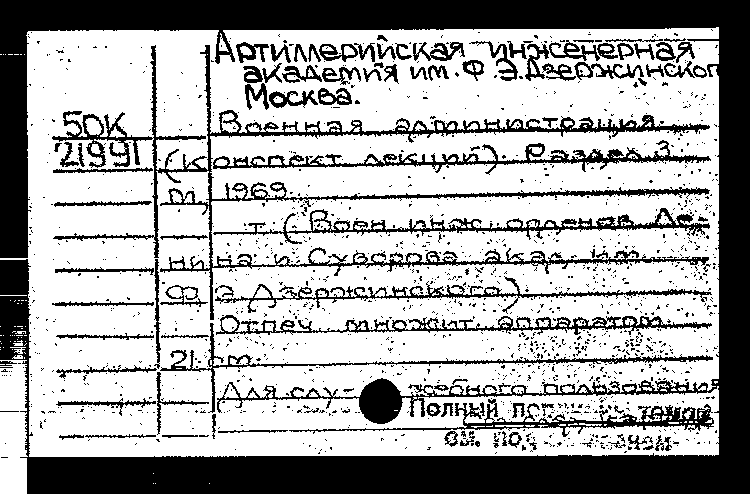 Артиллерийская инженерная
академия им. Ф.Э.Дзержинског
Москва.
50К Военная администрация.
21991 (конспект лекций). Раздел 3
М, 1969
т (Воен инж орденов Ле-
нина и Суворова акад. им.
Ф Э Дзержинского)
Отпеч множит аппаратом
21 см.
Для слу- жебного пользования
Полный
см. под